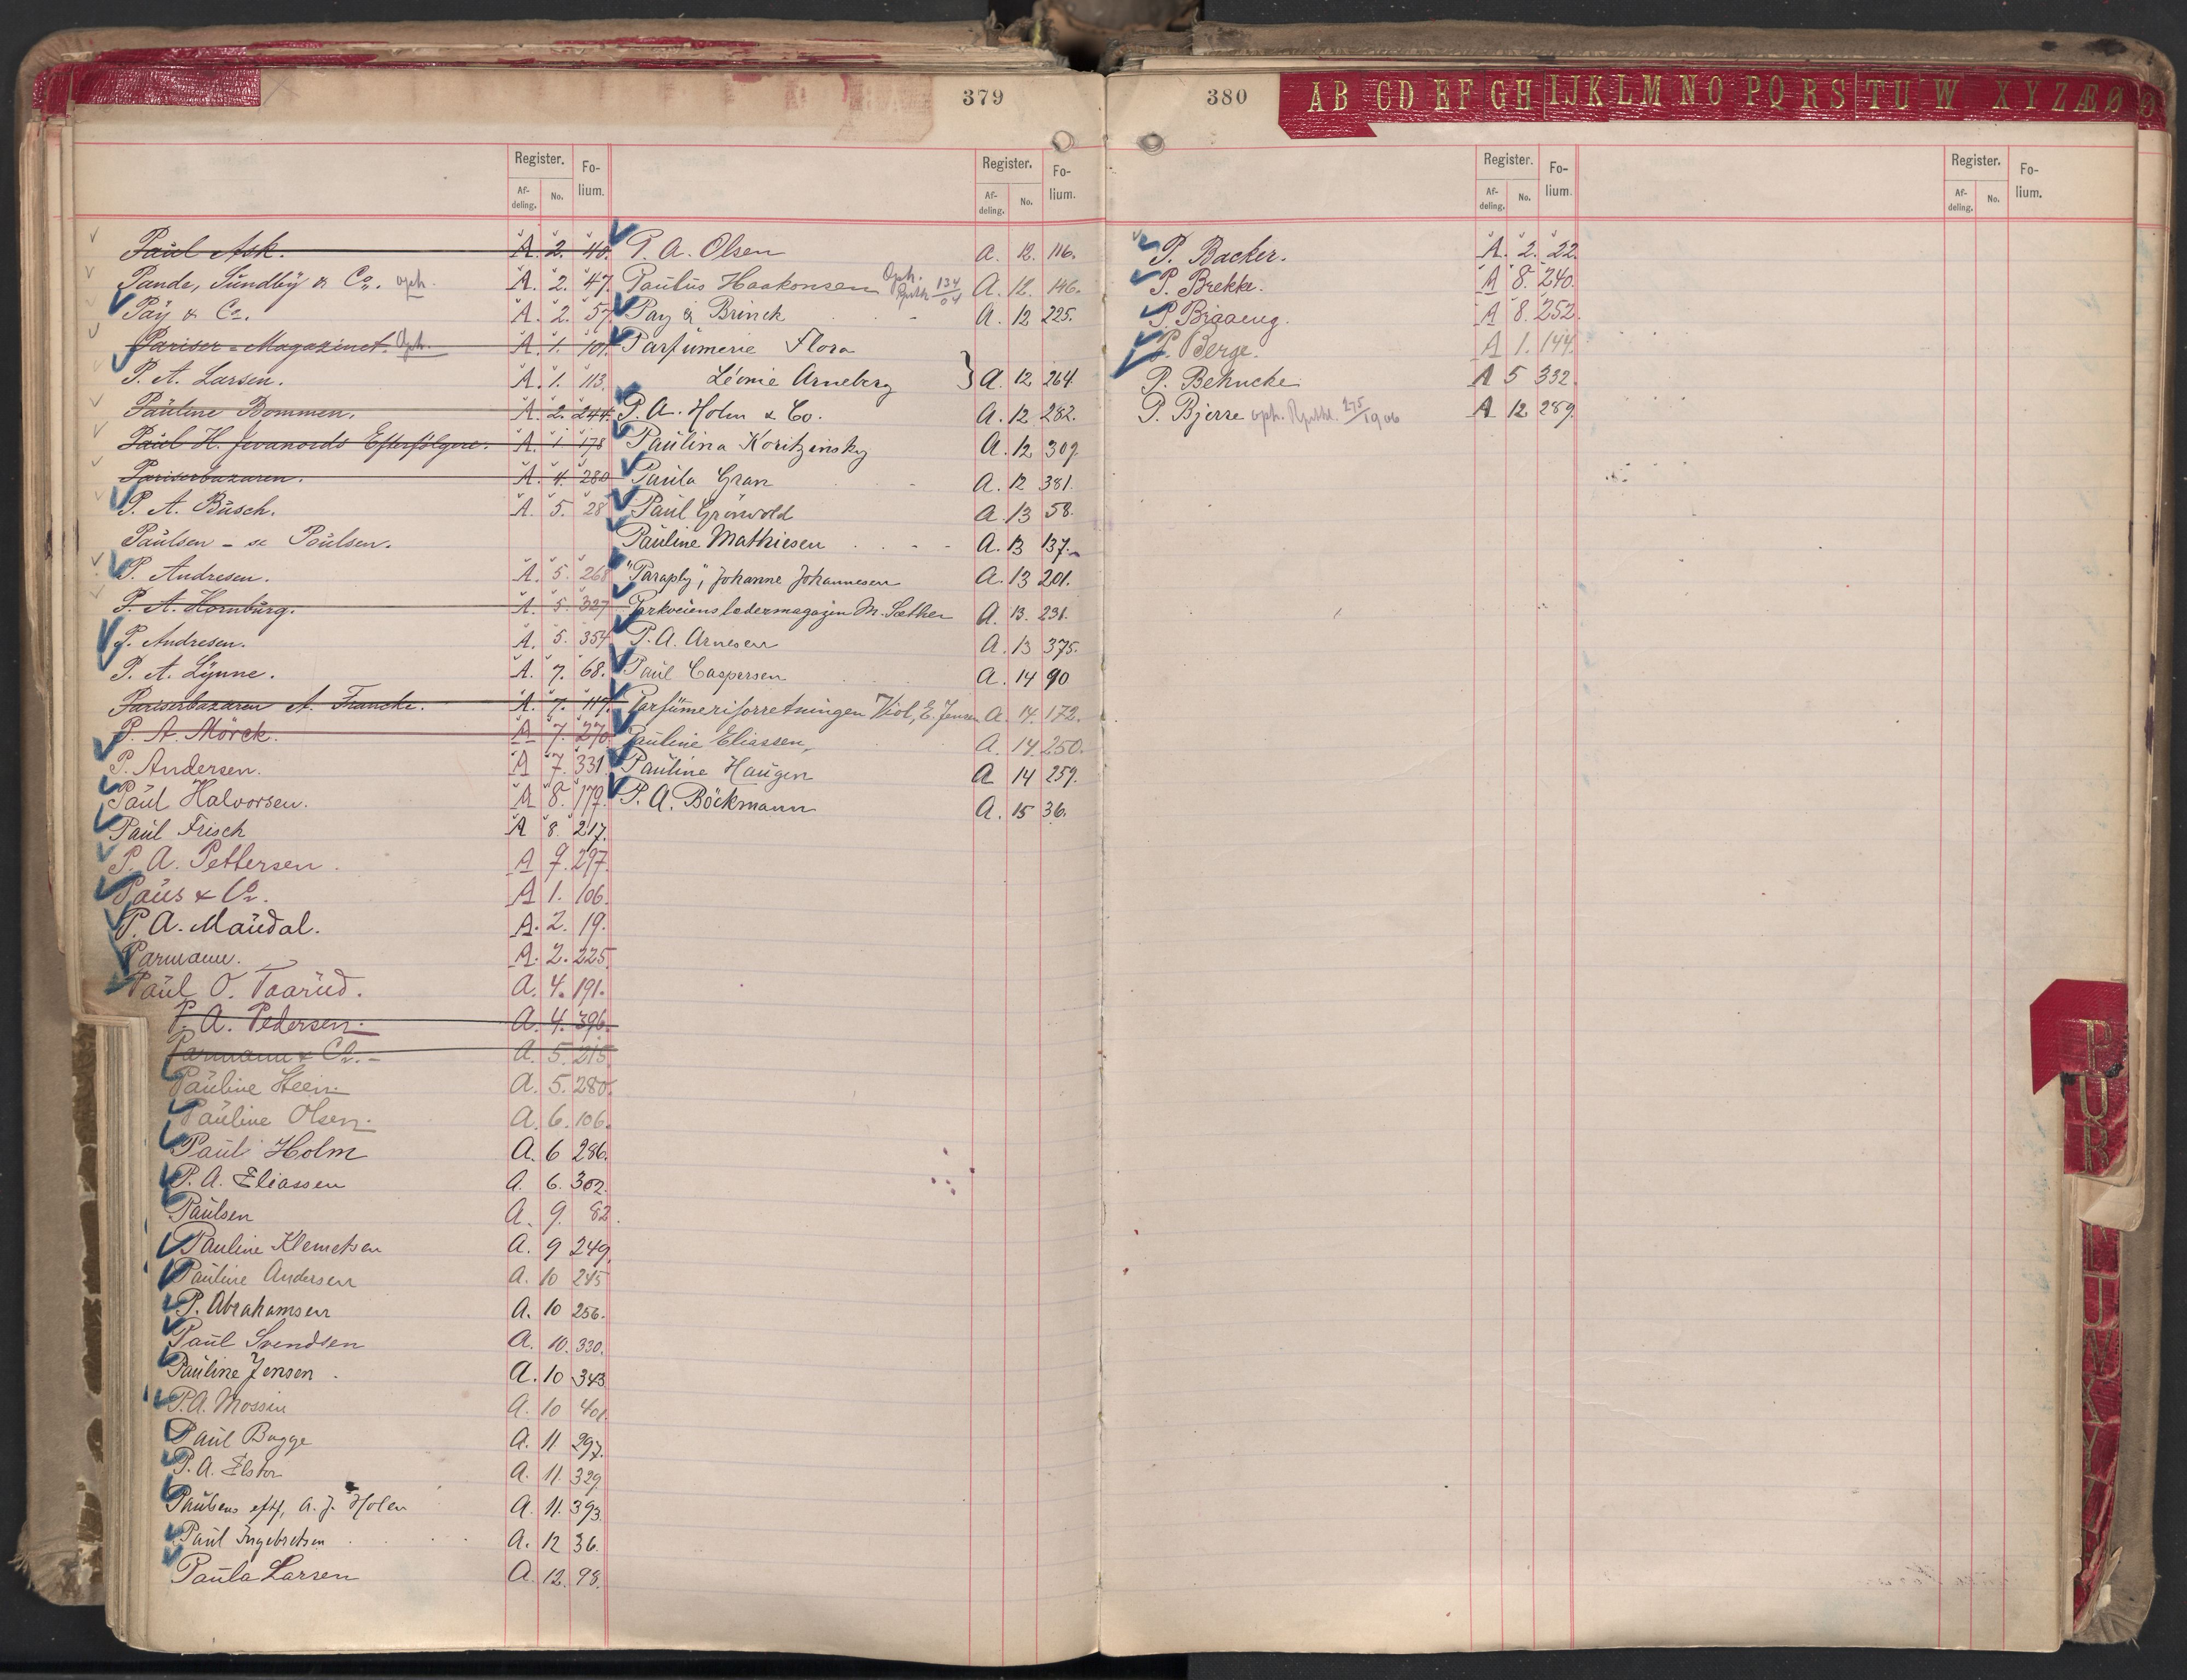 379
Register. Folium.
Afdeling. No.
Paul Ask. A. 2. 40.
Pande, Sundby & Co. oph. A. 2. 47.
Pay & Co. A. 2. 57
Pariser-Magazinet. Oph. A. 1. 101.
P. A. Larsen. A. 1. 113.
Pauline Bommen. A. 2. 244.
Paul H. Jevanords Efterfölgere. A. 1 178
Pariserbazaren. A. 4. 280
P. A. Busch. A. 5. 28
Paulsen - se Poulsen.
P. Andresen. A. 5. 268
P. A. Hornburg. A. 5. 327
P. Andresen. A. 5. 354
P. A. Lynne. A. 7. 68.
Pariserbazaren A. Francke. A. 7. 117.
P. A. Mörck. A 7. 270
P. Andersen. A 7. 331.
Paul Halvorsen. A 8. 179.
Paul Frisch A 8. 217.
P. A. Pettersen. A 7. 297.
Paus & Co. A 1. 106.
P. A. Maudal. A. 2. 19.
Parmann. A. 2. 225.
Paul O. Taarud. A. 4. 191.
P. A. Pedersen. A. 4. 396.
Parmann & Co. - A. 5. 215.
Pauline Steen. A. 5. 280.
Pauline Olsen. A. 6. 106.
Paul Holm A. 6 286.
P. A. Eliassen A. 6. 302.
Paulsen A. 9. 82.
Pauline Klemetsen A. 9 249.
Pauline Andersen A. 10 245
P. Abrahamsen A. 10 256.
Paul Svendsen A. 10. 320.
Pauline Jensen. A. 10 343
P. A. Mossin A. 10 401.
Paul Bugge A. 11 297.
P. A. Elstor A. 11. 329
Paulsens eftf, A. J. Holen A. 11. 393.
Paul Ingebretsen A. 12 36.
Paula Larsen A. 12. 98.
Register. Folium.
Afdeling. No.
P. A. Olsen A. 12. 116.
Paulus Haakonsen Oph. 134/04 A. 12. 146.
Pay & Brinck A. 12 225.
Parfumerie Flora
Léonie Arneberg } A. 12 264.
P. A. Holm & Co. A. 12 282.
Paulina Koritzinsky A. 12 309
Paula Gran A. 12 381.
Paul Grönvold A. 13 58.
Pauline Mathiesen A. 13 137.
"Paraply", Johanne Johannesen A. 13 201.
Parkveiens ledermagazin M. Sæther A. 13. 231.
P. A. Arnesen A. 13 375.
Paul Caspersen A. 14 90
Parfümeriforretningen Viol, E. Jensen A. 14. 172.
Pauline Eliassen, A. 14. 250.
Pauline Haugen A 14 259.
P. A. Böckmann A. 15 36.
380
AB CD EF GH IJ KL M NO PQ RS TU W XYZ ÆØ
Register. Folium.
Afdeling. No.
P. Backer. A. 2. 22.
P. Brekke. A 8. 240.
P. Braaeng. A 8. 252.
P. Berge. A 1. 144.
P. Behncke A 5 332.
P. Bjerre oph. 275/1906 A 12 289.
Register. Folium.
Afdeling. No.